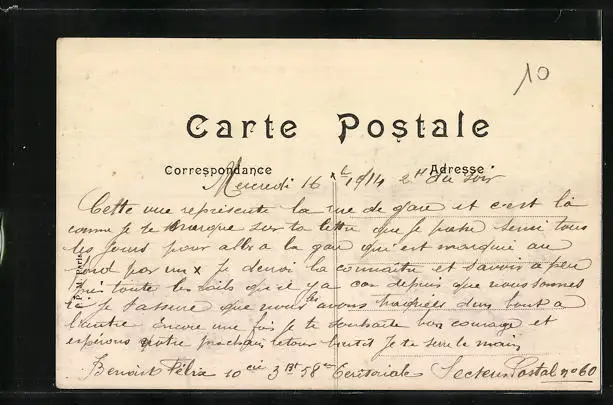 10
Carte Postale
Correspondance Adresse
Mercredi 16 1914 2H du soir
Cette vue représente la rue de gare et c'est là
comme je te marque sur ta lettre que je passe tous
les jours pour aller a la gare qui est marquée au
fond par un x je la connaître et savoir a peu
près toute les qu'il y a car depuis que nous sommes
ici je t'assure que nous les avons dans bout a
l'autre Encore une fois je te souhaite bon courage et
espérons notre prochain retour je te serre la main
Benoist Félix 10 cie 3 Bt 58e Territoriale Secteur Postal no 60
P. M. Paris